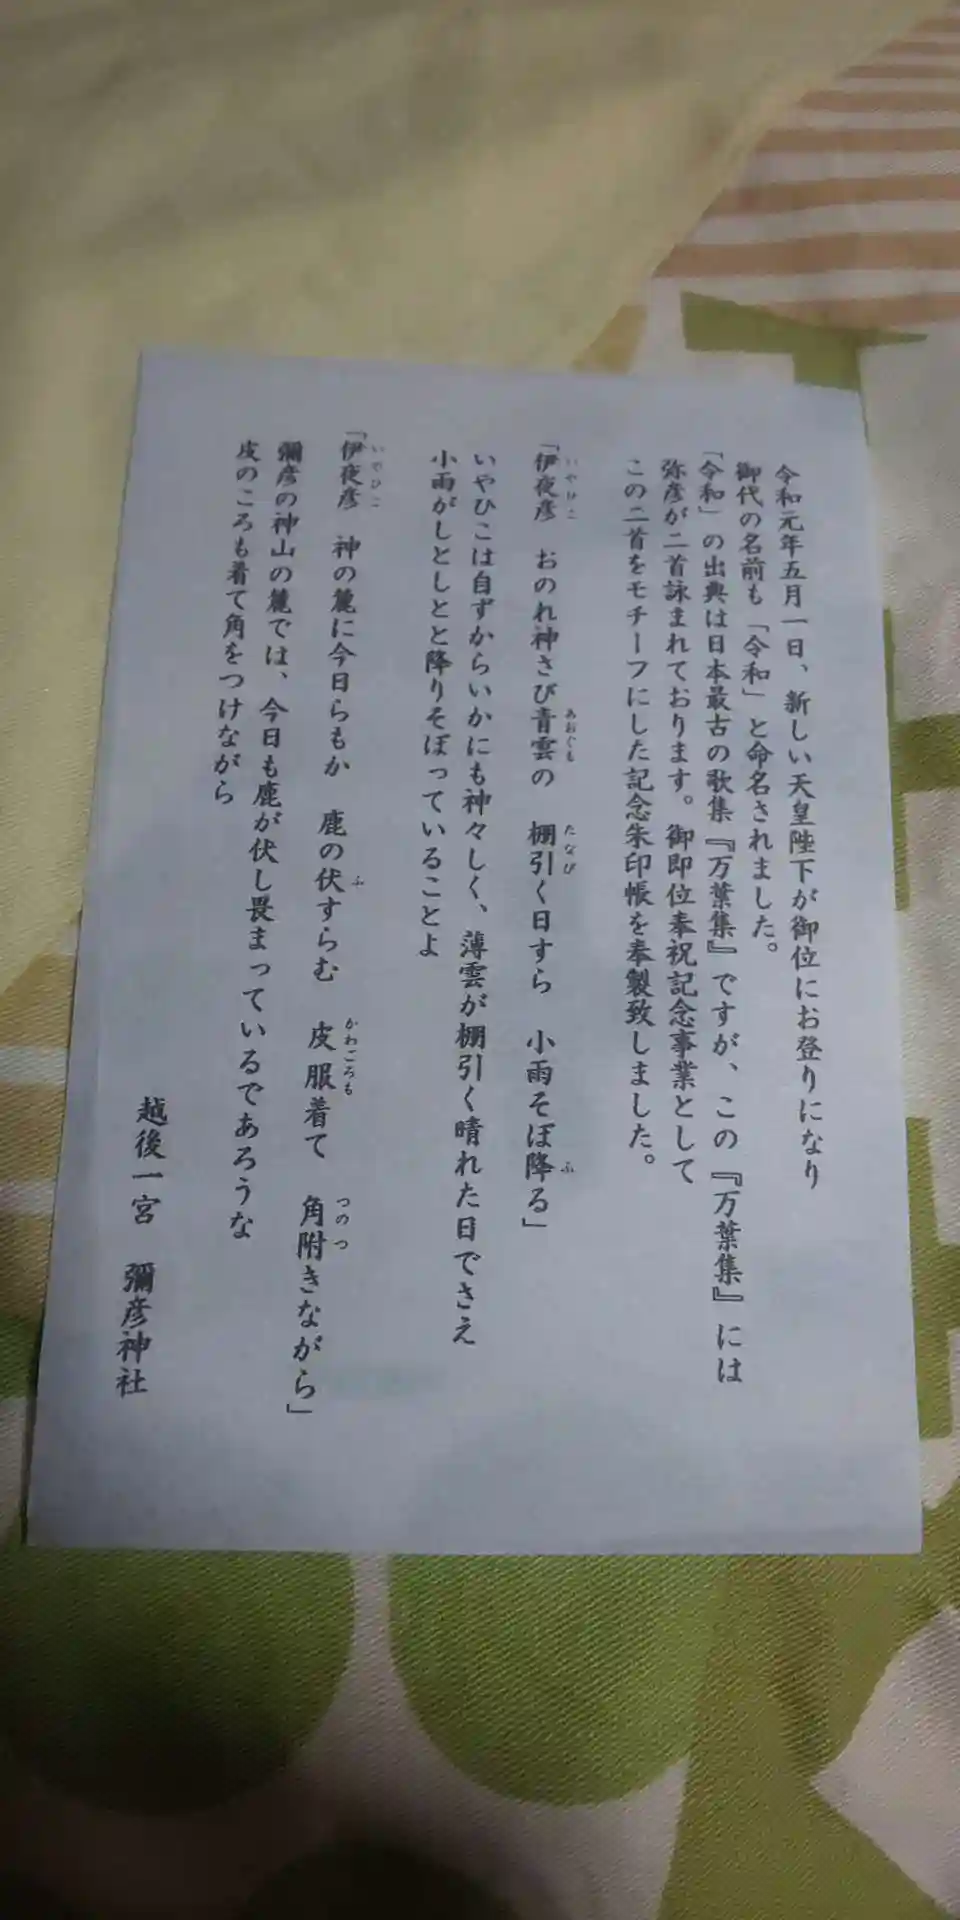 令和元年五月一日、新しい天皇陛下が御位にお登りになり
御代の名前も「令和」と命名されました。
「令和」の出典は日本最古の歌集『万葉集』ですが、この『万葉集』には
弥彦が二首詠まれております。御即位奉祝記念事業として
この二首をモチーフにした記念朱印帳を奉製致しました。
「伊夜彦 おのれ神さび青雲の 棚引く日すら 小雨そぼ降る」
いやひこ あおぐも たなび ふ
いやひこは自ずからいかにも神々しく、薄雲が棚引く晴れた日でさえ
小雨がしとしとと降りそぼっていることよ
「伊夜彦 神の麓に今日らもか 鹿の伏すらむ 皮服着て 角附きながら」
いやひこ ふ かわごろも つのつ
彌彦の神山の麓では、今日も鹿が伏し畏まっているであろうな
皮のころも着て角をつけながら
越後一宮 彌彦神社